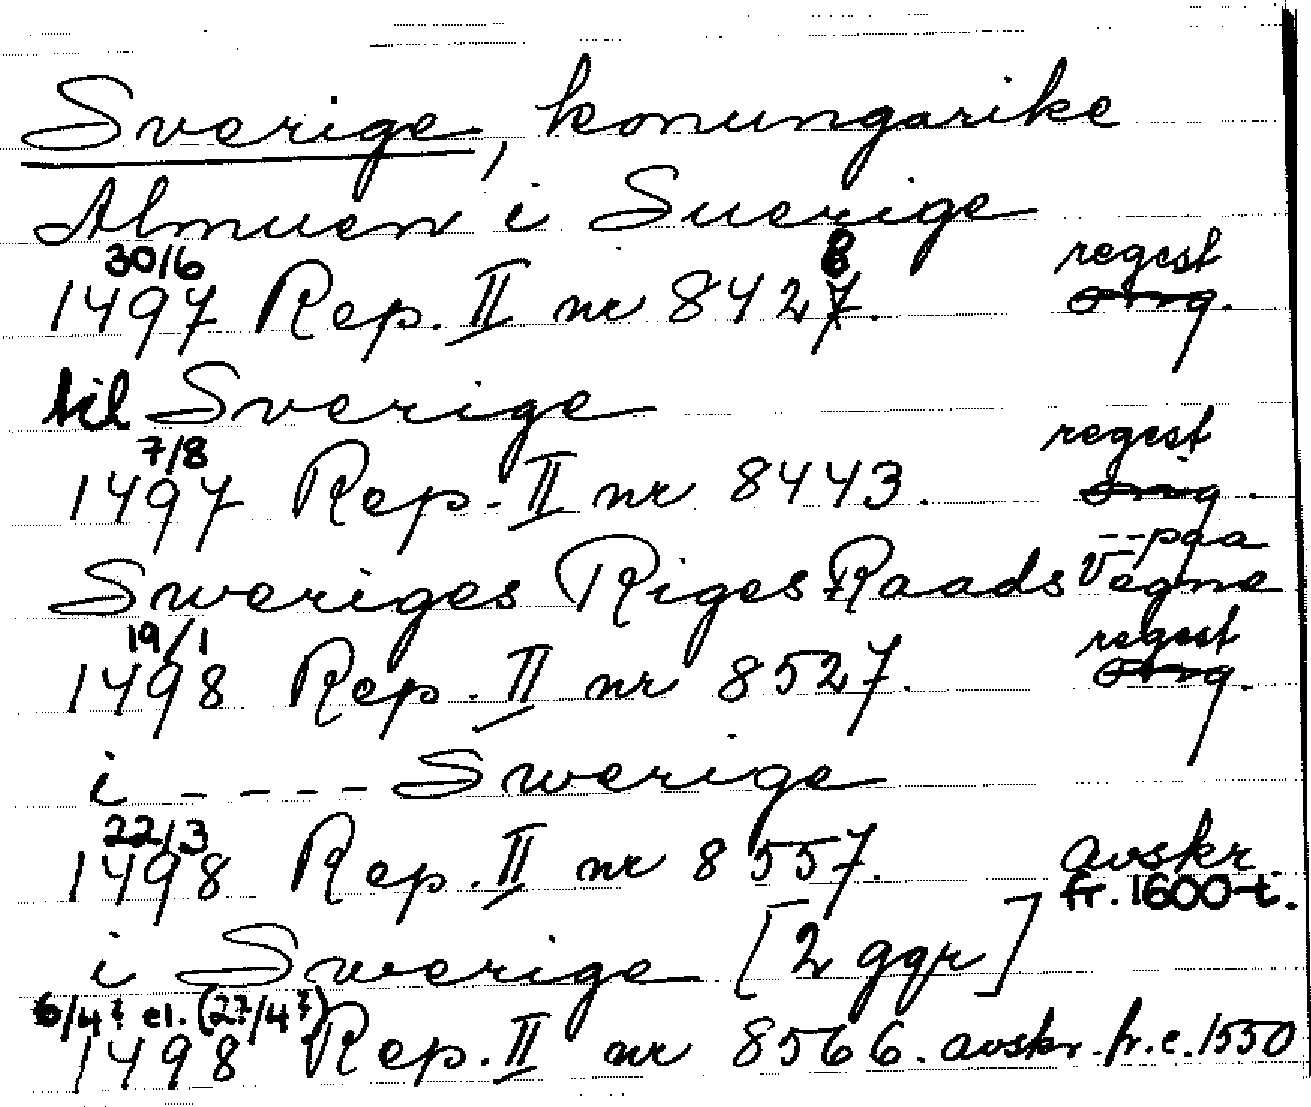 Sverige, konungarike
Almuen i Suerige
30/6
1497 Rep. II nr 8428. regest
til Sverige
7/8
1497 Rep. II nr 8443. regest
Sweriges Riges Raads Vegne --paa
19/1
1498 Rep. II nr 8527. regest
i ---- Swerige
22/3
1498 Rep. II nr 8557. avskr. fr. 1600-t.
i Swerige [2 ggr]
6/4? el. (27/4?)
1498 Rep. II nr 8566. avskr. fr. c. 1550